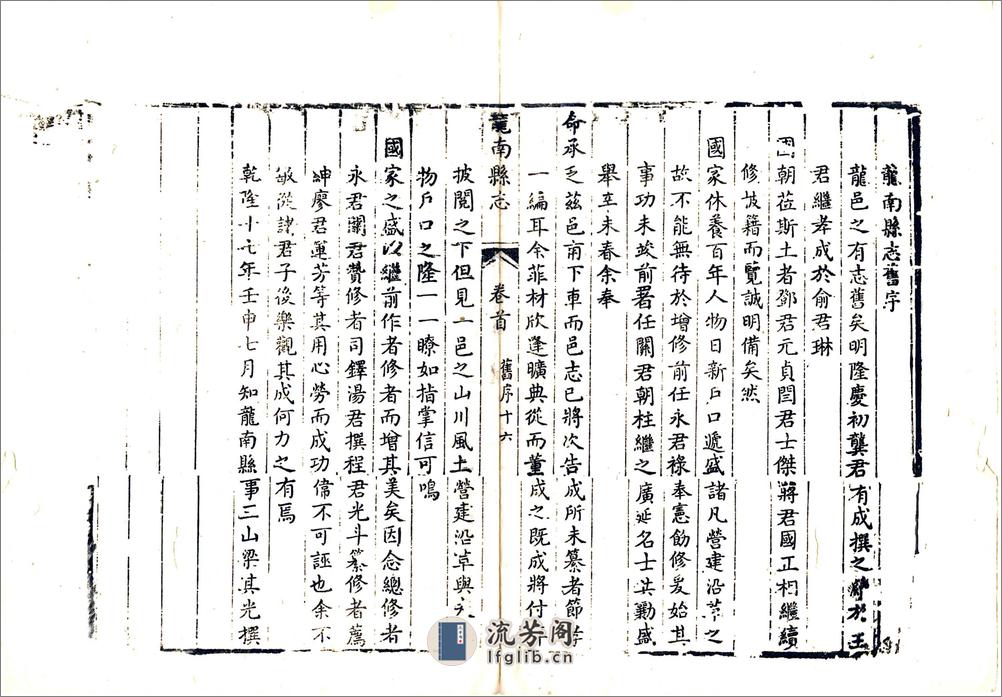 龍南縣志舊序
龍邑之有志舊矣明隆慶初龔君有成撰之於王
君繼孝成於俞君琳
國朝莅斯土者鄧君元貞閆君士傑蔣君國正相繼續
修披籍而覽誠明備矣然
國家休養百年人物日新戶口遞盛諸凡營建沿革之
故不能無待於增修前任永君祿奉憲飭修爰始其
事功未竣前署任關君朝柱繼之廣延名士共勷盛
舉辛未春余奉
命承乏茲邑甫下車而邑志已將次告成所未纂者節孝
一編耳余菲材欣逢曠典從而董成之既成將付
龍南縣志
卷首
舊序十六
披閱之下但見一邑之山川風土營建沿革與
物戶口之隆一一瞭如指掌信可鳴
國家之盛以繼前作者修者而增其美矣因念總修者
永君關君贊修者司鐸湯君撰程君光斗纂修者薦
紳廖君運芳等其用心勞而成功偉不可誣也余不
敏從諸君子後樂觀其成何力之有焉
乾隆十七年壬申七月知龍南縣事三山梁其光撰
流芳阁
lfglib.cn